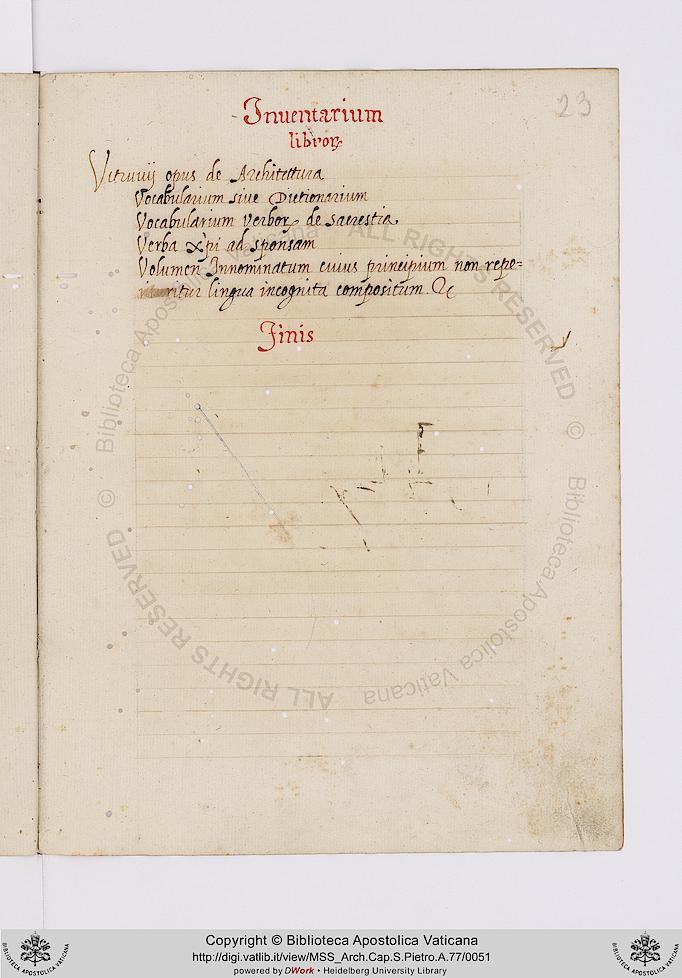 23
Inuentarium
libroꝝ
Vitruuij opus de Architettura
Vocabularium siue Dictionarium
Vocabularium verboꝝ de sacrestia
Verba Xp̄i ad sponsam
Volumen Innominatum cuius principium non repe=
ritur lingua incognita compositum. &c
Finis
© Biblioteca Apostolica Vaticana ALL RIGHTS RESERVED
© Biblioteca Apostolica Vaticana ALL RIGHTS RESERVED
BIBLIOTECA APOSTOLICA VATICANA
Copyright © Biblioteca Apostolica Vaticana
http://digi.vatlib.it/view/MSS_Arch.Cap.S.Pietro.A.77/0051
powered by DWork • Heidelberg University Library
BIBLIOTECA APOSTOLICA VATICANA